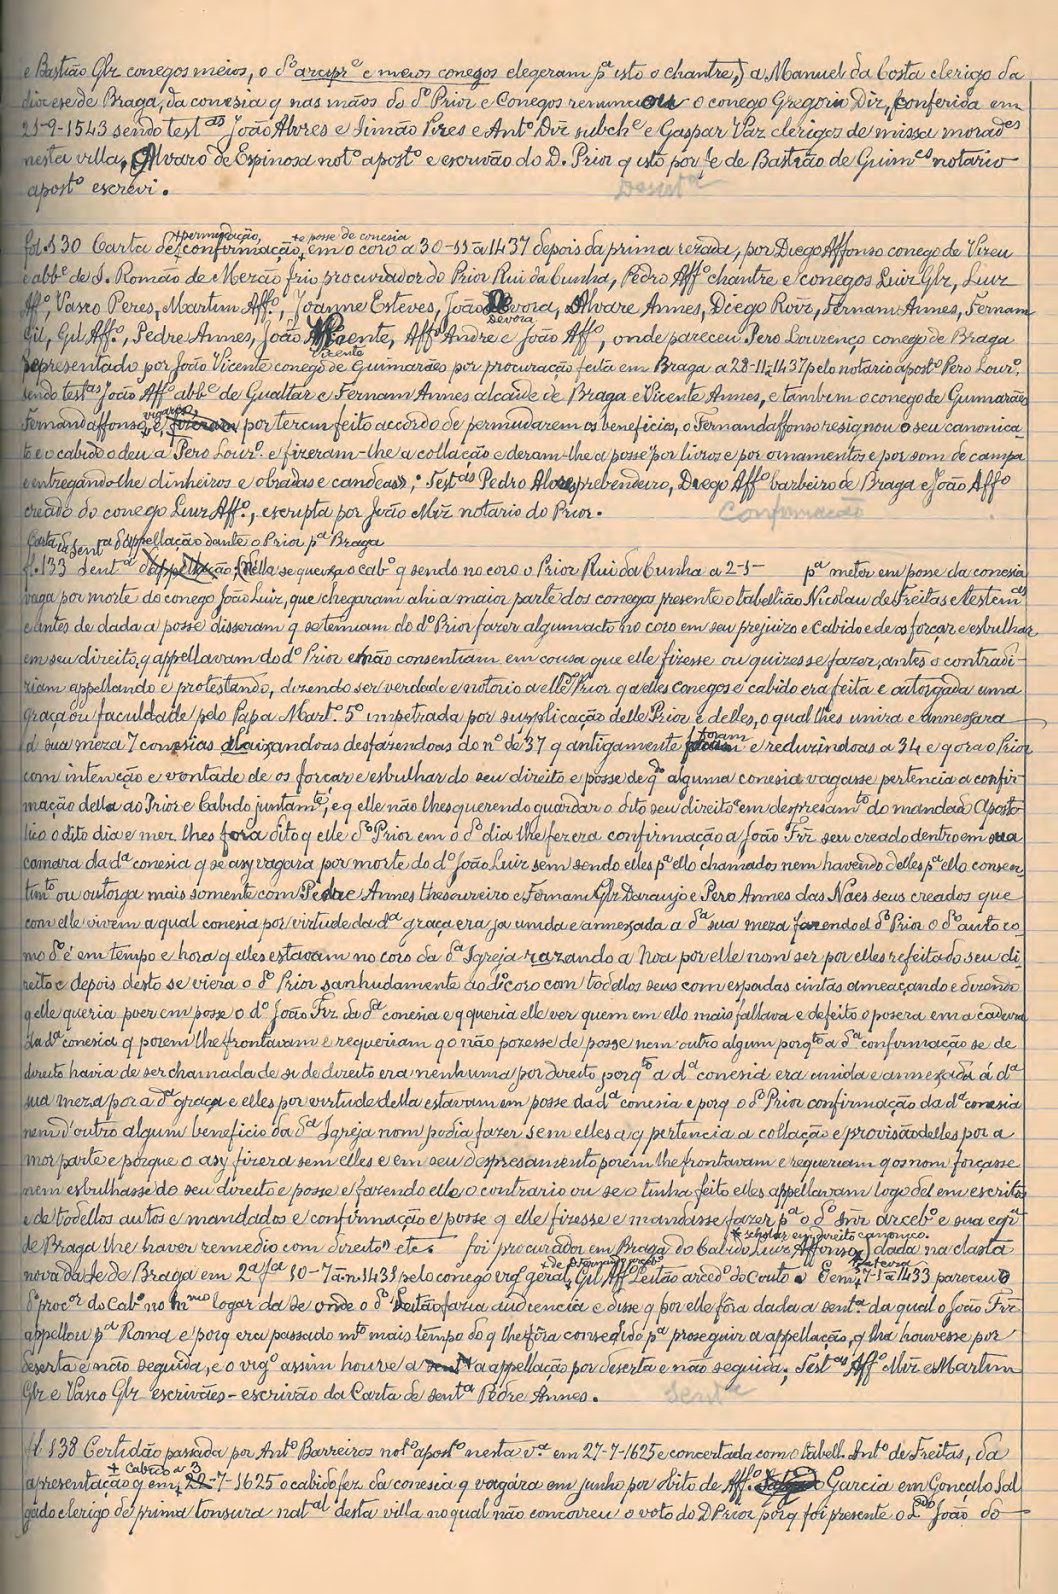 e Bastião Glz conegos meios, o dº arcip.e e meios conegos elegeram pª isto o chantre,) a Manuel da Costa clerigo da
diocese de Braga, da conesia q nas mãos do dº Prior e Conegos renunciou o conego Gregorio Diz, conferida em
25-9-1543 sendo test.as João Alvres e Simão Peres e Antº Diz subch.e e Gaspar Vaz clerigos de missa morad.es
nesta villa, Alvaro de Espinosa notº apostº e escrivão do D. Prior q isto por fe de Bastião de Guim.es notario
apostº escrevi.
fol. 130 Carta de +permudação, confirmação, +e posse de conesia em o coro a 30-11-a 1437 depois da prima rezada, por Diego Affonso conego de Vizeu
e abb.e de S. Romão de Mezão frio procurador do Prior Rui da Cunha, Pedro Affº chantre e conegos Luiz Glz, Luiz
Affº, Vasco Peres, Martim Affº, Joanne Esteves, João Devora, Alvare Annes, Diego Roiz, Fernam Annes, Fernam
Gil, Gil Affº, Pedre Annes, João Vicente, Affº Andre e João Affº, onde pareceu Pero Lourenço conego de Braga
representado por João Vicente conego de Guimarães por procuração feita em Braga a 28-11-1437 pelo notario apostº Pero Lourº
sendo test.as João Affº abb.e de Gualtar e Fernam Annes alcaide de Braga e Vicente Annes, e tambem o conego de Guimarães
Fernandaffonso, e por terem feito accordo de permudarem os beneficios, o Fernandaffonso resignou o seu canonica-
to e o cabido o deu a Pero Lourº e fizeram-lhe a collação e deram-lhe a posse "por livros e por ornamentos e por som de campa
e entregando-lhe dinheiros e obradas e candeas"; Test.as Pedro prebendeiro, Diego Affº barbeiro de Braga e João Affº
creado do conego Luiz Affº, escripta por João Miz notario do Prior. Confirmação
Carta de sent.ª d'appellação dante o Prior pª Braga
fl. 133 Sent.ª Nella se queixa o cabº q sendo no coro o Prior Rui da Cunha a 2-5- pª meter em posse da conesia
vaga por morte do conego João Luiz, que chegaram ahi a maior parte dos conegos presente o tabellião Nicolau de Freitas e testem.as
e antes de dada a posse disseram q se temiam do dº Prior fazer algum acto no coro em seu prejuizo e Cabido e de os forçar e esbulhar
em seu direito, q appellavam do dº Prior e não consentiam em cousa que elle fizesse ou quizesse fazer, antes o contradi-
ziam appellando e protestando, dizendo ser verdade e notorio a elle Prior q a elles conegos e cabido era feita e outorgada uma
graça ou faculdade pelo Papa Martº 5º impetrada por supplicação delle Prior e delles, o qual lhes unira e annexara
á sua meza 7 conesias desfazendoas do nº de 37 q antigamente foram e reduzindoas a 34 e q ora o Prior
com intenção e vontade de os forçar e esbulhar do seu direito e posse de q.do alguma conesia vagasse pertencia a confir-
mação della ao Prior e Cabido juntam.te, e q elle não lhes querendo guardar o dito seu direito e em despresam.to do mandado Aposto-
lico o dito dia e mez lhes fora dito q elle dº Prior em o dº dia lhe fezera confirmação a João Frz seu creado dentro em sua
camara da dª conesia q se asy vagara por morte do dº João Luiz sem sendo elles pª ello chamados nem havendo delles pª ello consen-
tim.to ou outorga mais somente com Pedre Annes thesoureiro e Fernam Glz Daraujo e Pero Annes das Naes seus creados que
com elle vivem a qual conesia por virtude da dª graça era ja unida e annexada a dª sua meza fazendo el dº Prior o dº auto co-
mo dº é em tempo e hora q elles estavam no coro da dª Igreja razando a Noa por elle nom ser por elles refeitado seu di-
reito e depois desto se viera o dº Prior sanhudamente ao dº coro com todellos seus com espadas cintas ameaçando e dizendo
q elle queria poer em posse o dº João Frz da dª conesia e q queria elle ver quem em ello mais fallava e defeito o posera em a cadeira
da dª conesia q porem lhe frontavam e requeriam q o não pozesse de posse nem outro algum porq.to a dª confirmação se de
direito havia de ser chamada de si de direito era nenhuma por direito porq.to a dª conesia era unida e annexada á dª
sua meza por a dª graça e elles por virtude della estavam em posse da dª conesia e porq o dº Prior confirmação da dª conesia
nem d'outro algum beneficio da dª Igreja nom podia fazer sem elles a q pertencia a collação e provisão delles por a
mor parte e porque o asy fizera sem elles e em seu despresamento porem lhe frontavam e requeriam q os nom forçasse
nem esbulhasse do seu direito e posse e fazendo elle o contrario ou se o tinha feito elles appellavam logo del em escritos
e de todellos autos e mandados e confirmação e posse q elle fizesse e mandasse fazer pª o dº snr arcebº e sua egrª
de Braga lhe haver remedio com direito" etc. foi procurador em Braga do Cabido Luiz Affonso, +scholar em direito canonico. dada na clasta
nova da Se de Braga em 2ª fª 10-7-a.n. 1431 pelo conego vigº geral, Gil Affº Leitão arcedº do Couto. E em 7-1-a 1433 pareceu o
dº proc.or do Cabº no m.mo logar da Se onde o dº Leitão fazia audiencia e disse q por elle fôra dada a sent.ª da qual o João Frz
appellou pª Roma e porq era passado m.to mais tempo do q lhe fôra conseguido pª proseguir a appellação, q lha houvesse por
deserta e não seguida, e o vigº assim houve a appellação por deserta e não seguida; Test.as Affº Miz e Martim
Glz e Vasco Glz escrivães - escrivão da Carta de sent.ª Pedre Annes. Sent.ª
fl. 138 Certidão passada por Antº Barreiros notº apostº nesta v.ª em 27-7-1625 e concertada com o tabell. Antº de Freitas, da
apresentação q em + Cabido a 3 -7-1625 o cabido fez da conesia q vagára em junho por obito de Affº Garcia em Gonçalo Sal-
gado clerigo de prima tonsura nat.al desta villa no qual não concorreu o voto do D Prior porq foi presente o L.do João do